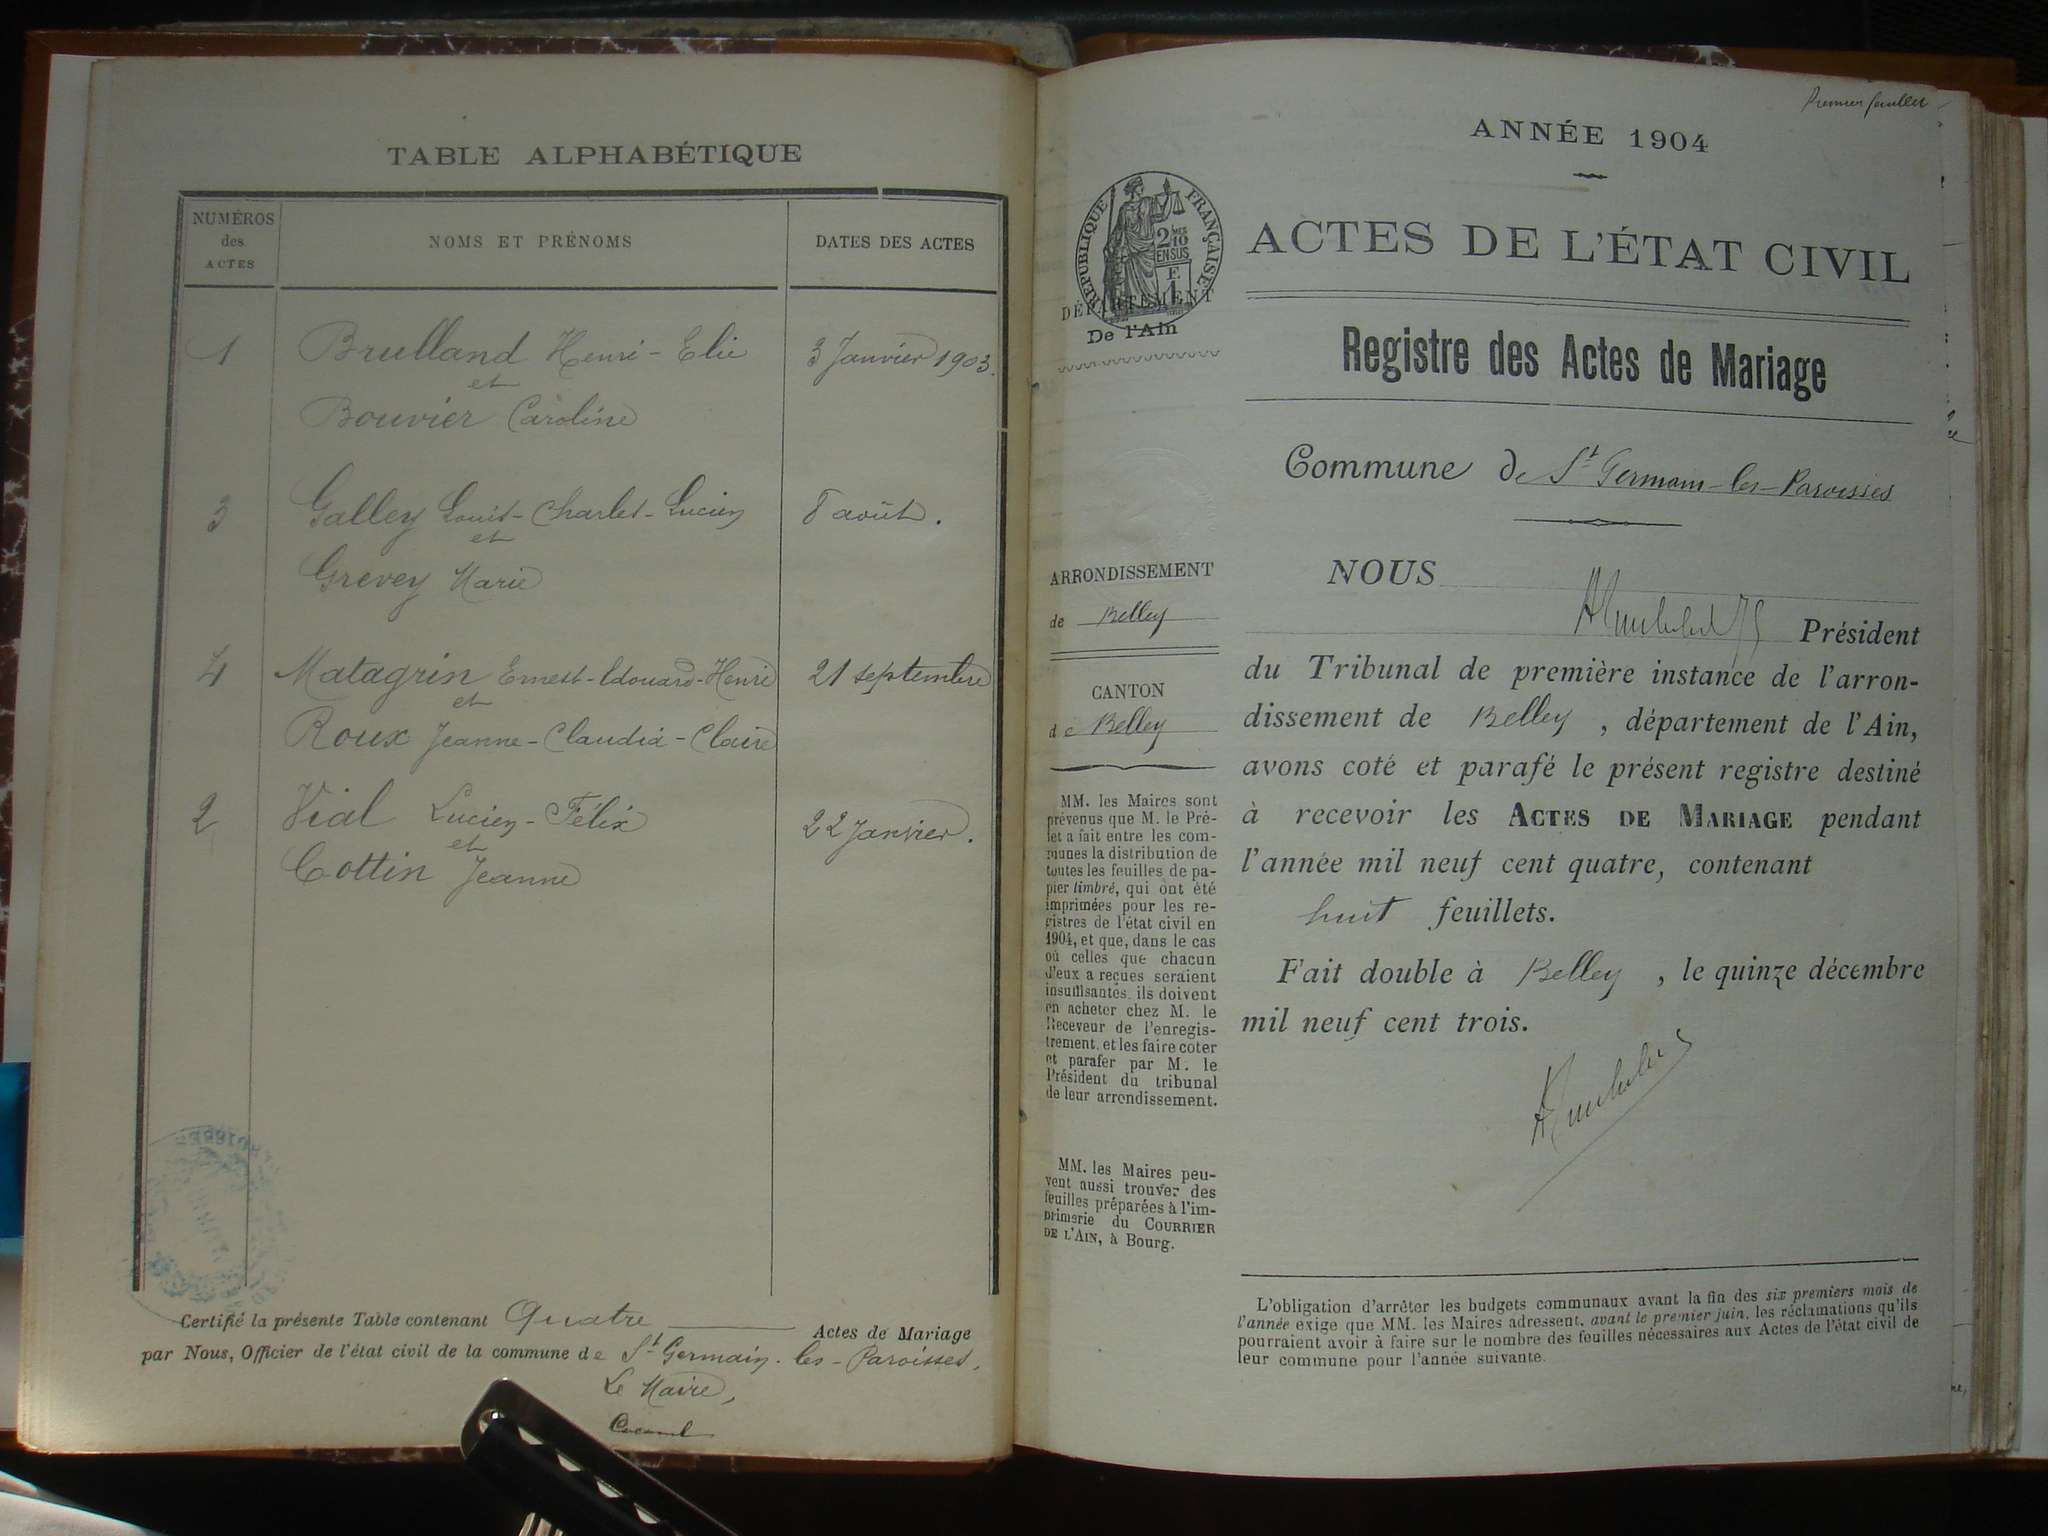 TABLE ALPHABÉTIQUE
NUMÉROS
des
ACTES
NOMS ET PRÉNOMS
DATES DES ACTES
1 Brulland Henri-Elie 3 Janvier 1903.
et
Bouvier Caroline
3 Galley Louis-Charles-Lucien 8 août.
et
Grevey Marie
4 Matagrin Ernest-Edouard-Henri 21 septembre
et
Roux Jeanne-Claudia-Claire
2 Vial Lucien-Félix 22 Janvier.
et
Cottin Jeanne
Certifié la présente Table contenant Quatre Actes de Mariage
par Nous, Officier de l'état civil de la commune de St Germain-les-Paroisses,
Le Maire,
Premier feuillet
ANNÉE 1904
RÉPUBLIQUE FRANÇAISE
2/10
EN SUS
DÉPARTEMENT
De l'Ain
ACTES DE L'ÉTAT CIVIL
Registre des Actes de Mariage
Commune de St Germain-les-Paroisses
ARRONDISSEMENT
de Belley
CANTON
de Belley
MM. les Maires sont
prévenus que M. le Pré-
fet a fait entre les com-
munes la distribution de
toutes les feuilles de pa-
pier timbré, qui ont été
imprimées pour les re-
gistres de l'état civil en
1904, et que, dans le cas
où celles que chacun
d'eux a reçues seraient
insuffisantes, ils doivent
en acheter chez M. le
Receveur de l'enregis-
trement, et les faire coter
et parafer par M. le
Président du tribunal
de leur arrondissement.
MM. les Maires peu-
vent aussi trouver des
feuilles préparées à l'im-
primerie du COURRIER
DE L'AIN, à Bourg.
NOUS
Président
du Tribunal de première instance de l'arron-
dissement de Belley, département de l'Ain,
avons coté et parafé le présent registre destiné
à recevoir les ACTES DE MARIAGE pendant
l'année mil neuf cent quatre, contenant
huit feuillets.
Fait double à Belley, le quinze décembre
mil neuf cent trois.
L'obligation d'arrêter les budgets communaux avant la fin des six premiers mois de
l'année exige que MM. les Maires adressent, avant le premier juin, les réclamations qu'ils
pourraient avoir à faire sur le nombre des feuilles nécessaires aux Actes de l'état civil de
leur commune pour l'année suivante.